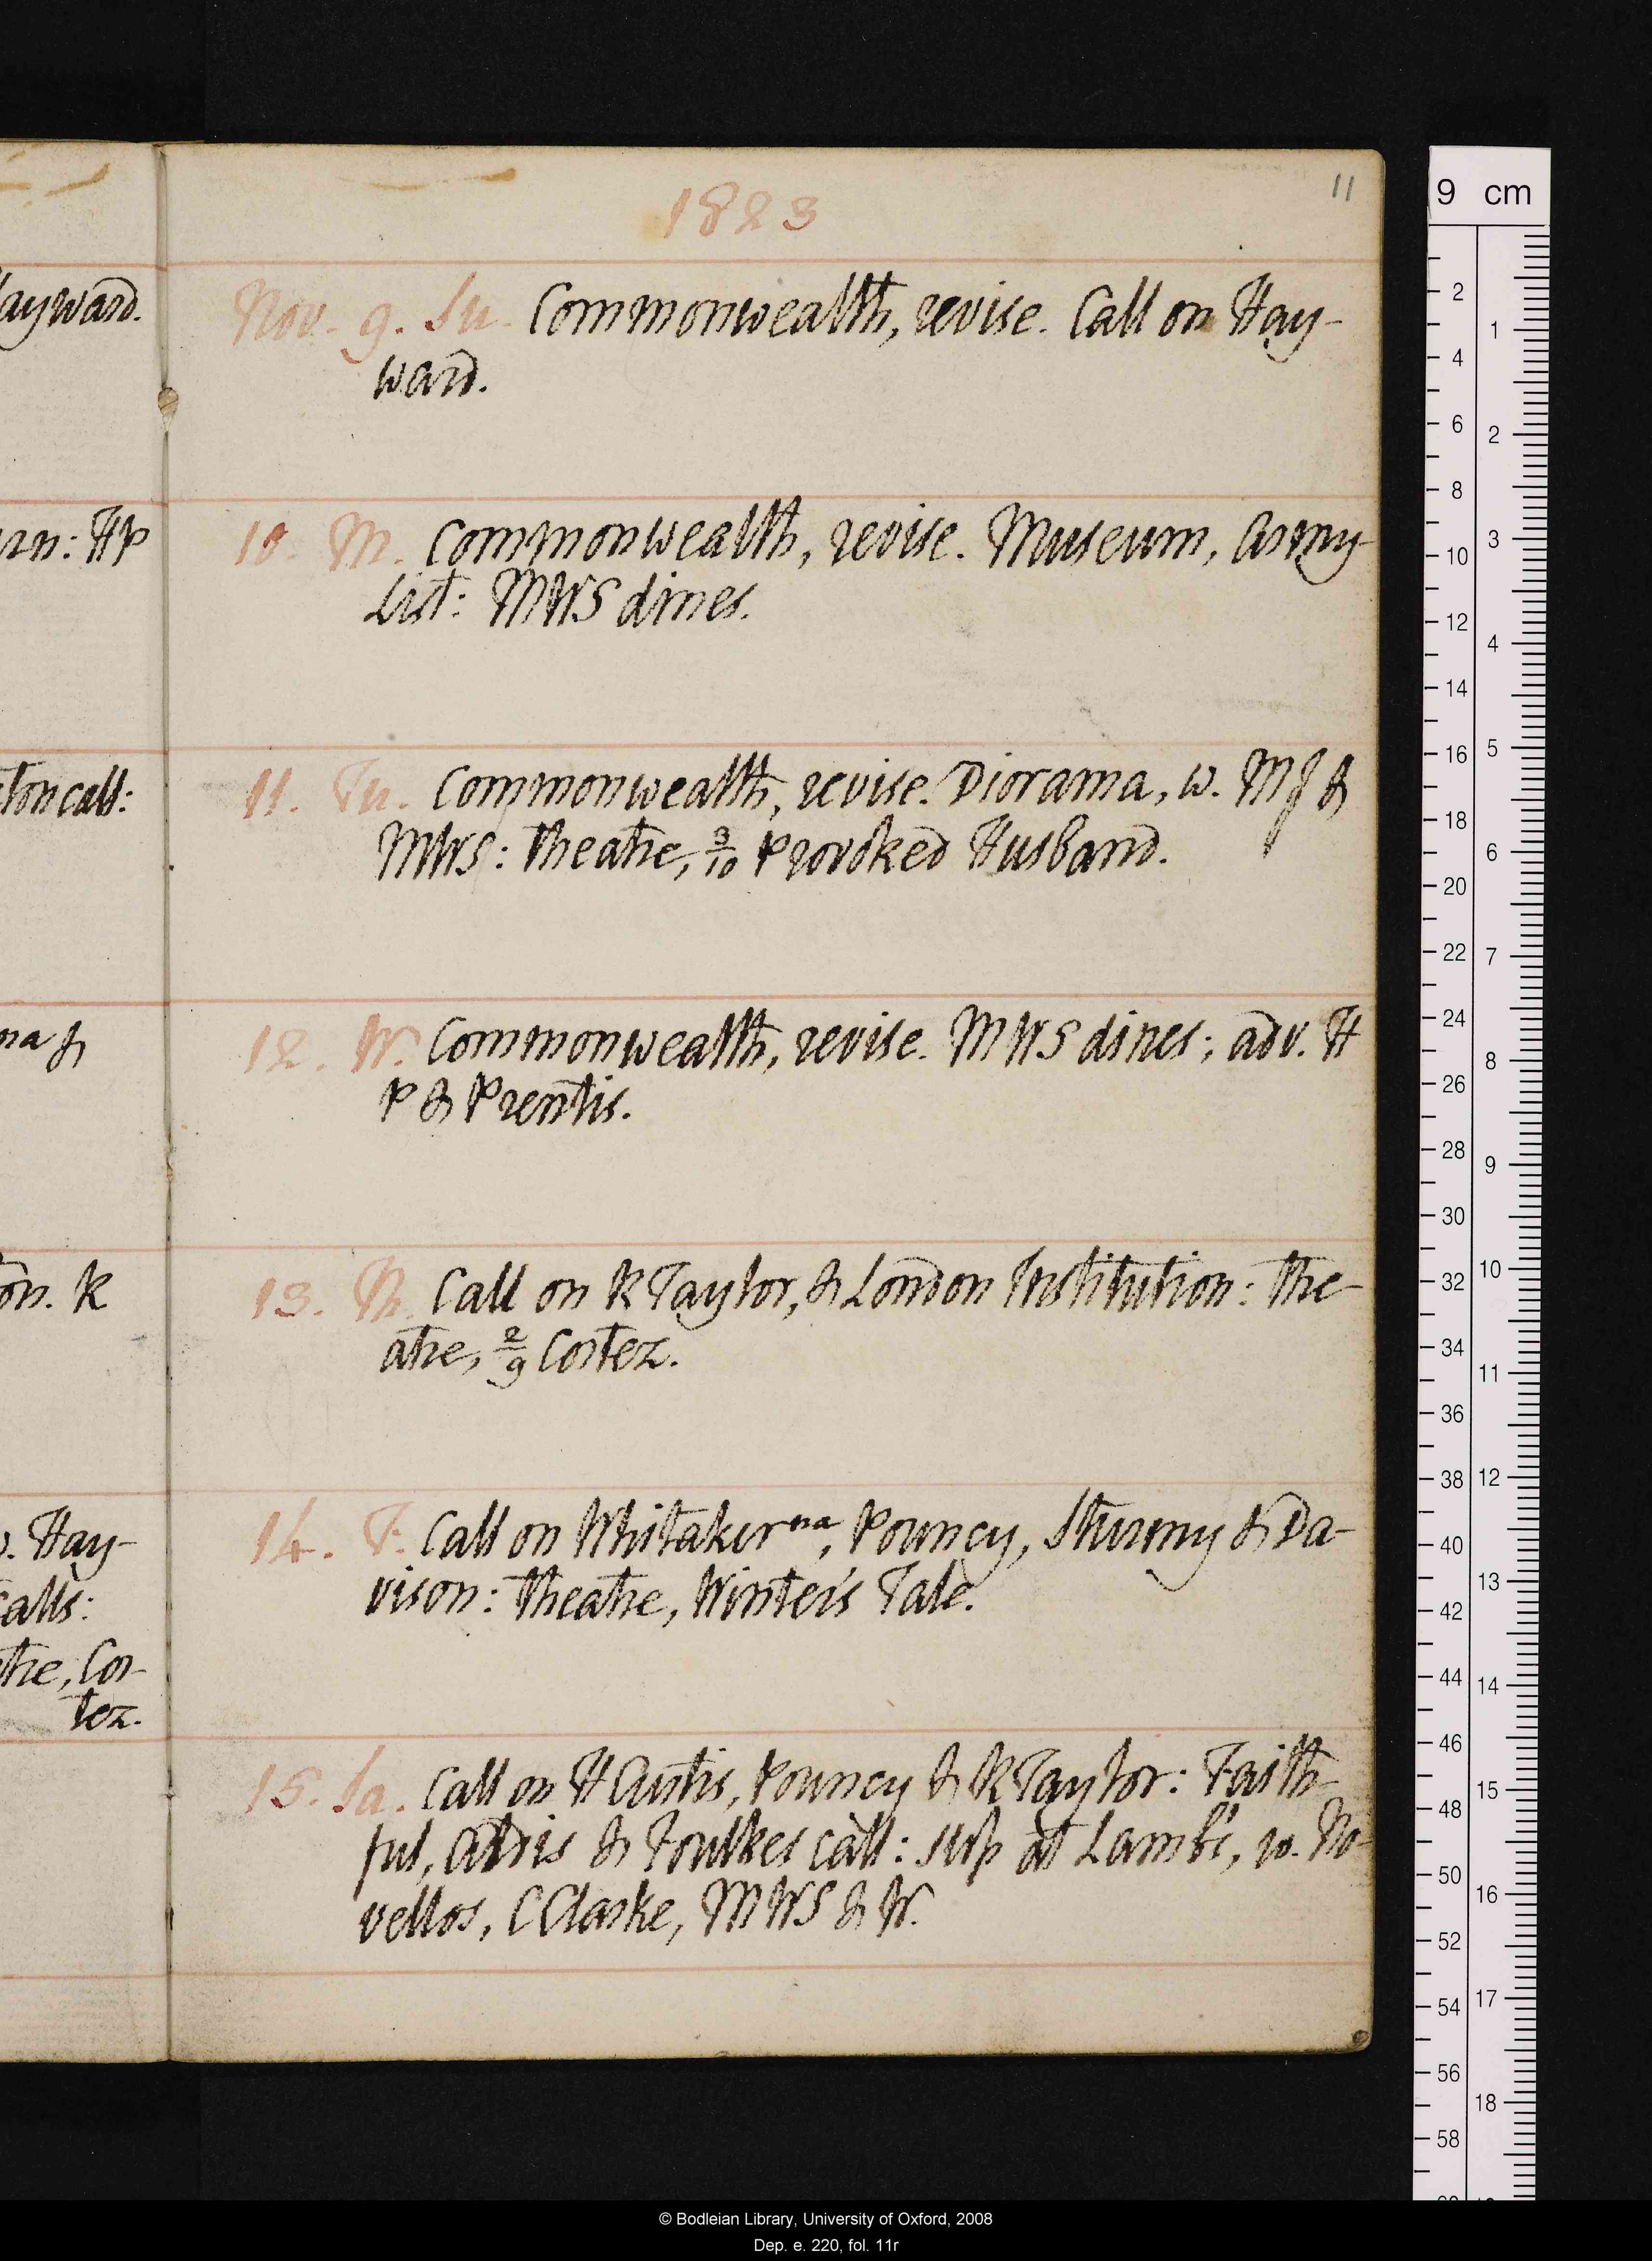 11
1823
ayward.
Nov. 9. Su. Commonwealth, revise. Call on Hay-
ward.
rn: HP
10. M. Commonwealth, revise. Museum, Army
List: MWS dines.
ton call:
11. Tu. Commonwealth, revise. Diorama, w. MJ &
MWS: Theatre, 3/10 Provoked Husband.
na &
12. W. Commonwealth, revise. MWS dines; adv. H
P & Prentis.
on. K
13. Th. Call on R Taylor, & London Institution: The-
atre, 2/9 Cortez.
14. F. Call on Whitaker na, Pouncy, Sturmy & Da-
vison: Theatre, Winter's Tale.
. Hay-
calls:
tre, Cor-
tez.
15. Sa. Call on H Austis, Pouncy & R Taylor: Faith-
ful, Aldis & Foulkes call: sup at Lamb's, w. No-
vellos, C Clarke, MWS & W.
9 cm
2
4
6
8
10
12
14
16
18
20
22
24
26
28
30
32
34
36
38
40
42
44
46
48
50
52
54
56
58
1
2
3
4
5
6
7
8
9
10
11
12
13
14
15
16
17
18
© Bodleian Library, University of Oxford, 2008
Dep. e. 220, fol. 11r